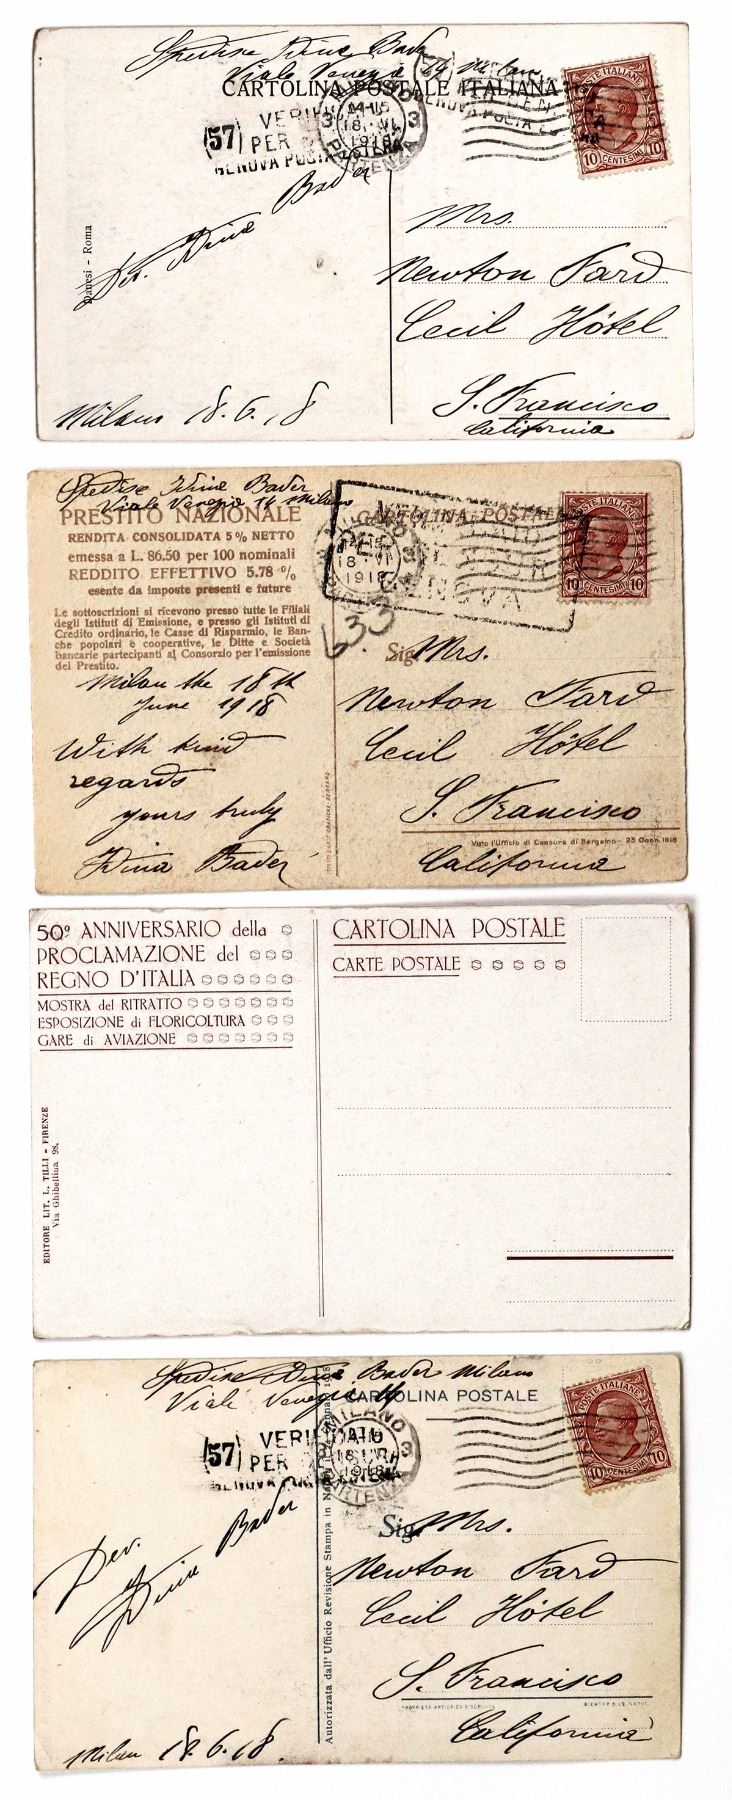 Spedisce Dina Bader
Viale Venezia 14 Milano
CARTOLINA POSTALE ITALIANA
(57) VERIFI
PER
GENOVA POSTA ESTERA
MILANO
3 3
18 VI
1918
PARTENZA
POSTE ITALIANE
10 CENTESIMI 10
Dev. Dina Bader
Danesi - Roma
Mrs.
Newton Fard
Cecil Hôtel
S. Francisco
California
Milano 18.6.18
Spedisce Dina Bader
Viale Venezia 14 Milano
PRESTITO NAZIONALE
RENDITA CONSOLIDATA 5% NETTO
emessa a L. 86.50 per 100 nominali
REDDITO EFFETTIVO 5.78 %
esente da imposte presenti e future
Le sottoscrizioni si ricevono presso tutte le Filiali
degli Istituti di Emissione, e presso gli Istituti di
Credito ordinario, le Casse di Risparmio, le Ban-
che popolari e cooperative, le Ditte e Società
bancarie partecipanti al Consorzio per l'emissione
del Prestito.
CARTOLINA POSTALE
GENOVA
18 VI
1918
POSTE ITALIANE
10 CENTESIMI 10
633
Milan the 18th
June 1918
With kind
regards
yours truly
Dina Bader
Sig. Mrs.
Newton Fard
Cecil Hôtel
S. Francisco
Visto l'Ufficio di Censura di Bergamo - 25 Genn. 1918
California
50º ANNIVERSARIO della
PROCLAMAZIONE del
REGNO D'ITALIA
MOSTRA del RITRATTO
ESPOSIZIONE di FLORICOLTURA
GARE di AVIAZIONE
EDITORE LIT. L. TILLI - FIRENZE
Via Ghibellina 98.
CARTOLINA POSTALE
CARTE POSTALE
Spedisce Dina Bader Milano
Viale Venezia 14
CARTOLINA POSTALE
(57) VERIFI
PER CENSURA
GENOVA POSTA ESTERA
MILANO
3
1918
PARTENZA
POSTE ITALIANE
10 CENTESIMI 10
Dev.
Dina Bader
Autorizzata dall'Ufficio Revisione Stampa in
Sig. Mrs.
Newton Fard
Cecil Hôtel
S. Francisco
PROPRIETÀ ARTISTICA RISERVATA
California
Milan 18.6.18.